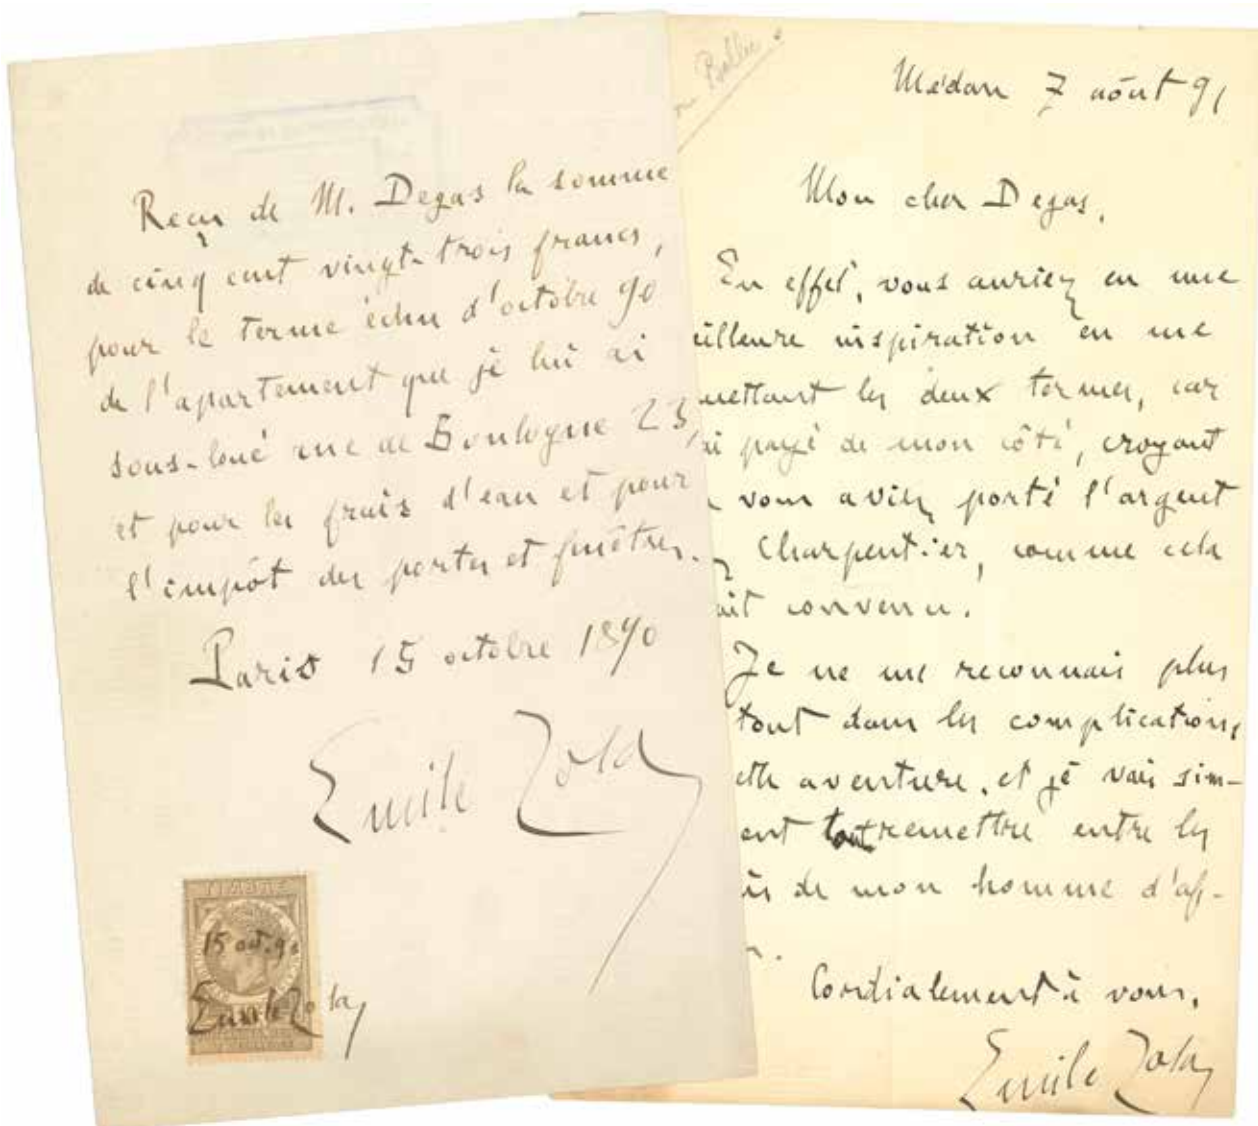 Reçu de M. Degas la somme
de cinq cent vingt-trois francs,
pour le terme échu d'octobre 90
de l'apartement que je lui ai
sous-loué rue de Boulogne 23,
et pour les frais d'eau et pour
l'impôt des portes et fenêtres.
Paris 15 octobre 1890
Emile Zola
15 oct. 90
Emile Zola
Médan 7 août 91
Mon cher Degas,
En effet, vous auriez eu une
eilleure inspiration en me
mettant les deux termes, car
ai payé de mon côté, croyant
vous aviez porté l'argent
Charpentier, comme cela
ait convenu.
Je ne me reconnais plus
tout dans les complications,
ette aventure, et je vais sim-
ent tout remettre entre les
ins de mon homme d'af-
Cordialement à vous,
Emile Zola